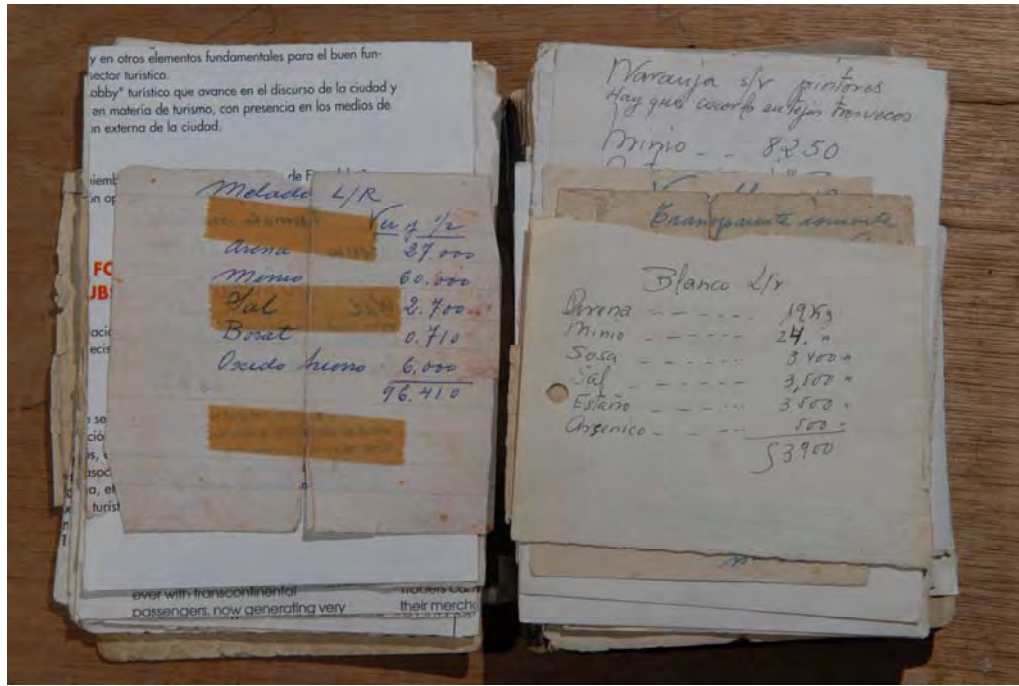 y en otros elementos fundamentales para el buen fun-
sector turístico.
obby" turístico que avance en el discurso de la ciudad y
en materia de turismo, con presencia en los medios de
n externa de la ciudad.
iemb
de F
n op
FO
UBS
acio
ecis
se
ció
os,
asoc
a, el
turíst
Melado L/R
Ver y 1/2
Arena 27.000
Minio 60.000
Sal 2.700
Borat 0.710
Oxido hierro 6.000
96.410
ever with transcontinental
passengers, now generating very
their mercha
Naranja s/r pintores
Hay que cocerlo en tejas tres veces
Minio - - 8,250
Transparente
Blanco L/r
Arena - - - - - - - 19 Kg
Minio - - - - - - - 24. "
Sosa - - - - - - - 3400 "
Sal - - - - - - - 3,500 "
Estaño - - - - - - 3500 "
Arsenico - - - - - 500 "
53900